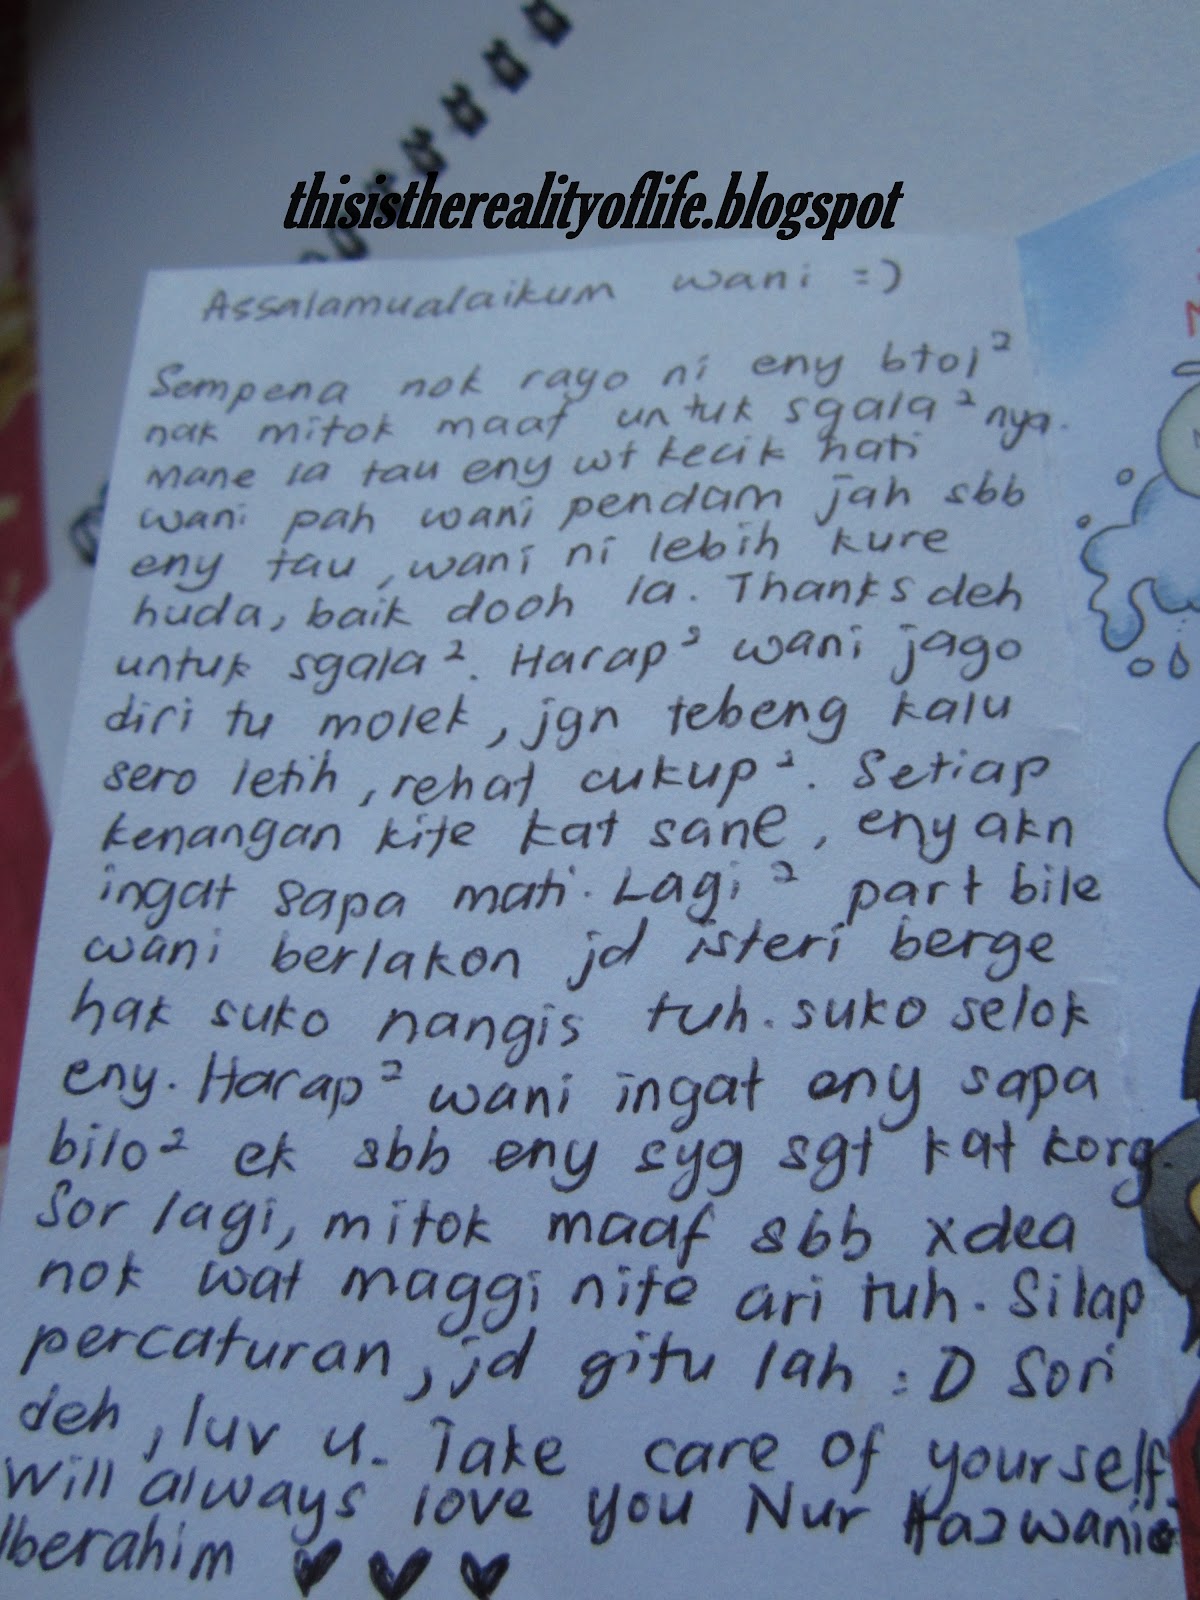 thisistherealityoflife.blogspot
Assalamualaikum wani =)
Sempena nok rayo ni eny btol²
nak mitok maaf untuk sgala² nya.
Mane la tau eny wt kecik hati
wani pah wani pendam jah sbb
eny tau, wani ni lebih kure
huda, baik dooh la. Thanks deh
untuk sgala². Harap² wani jago
diri tu molek, jgn tebeng kalu
sero letih, rehat cukup². Setiap
kenangan kite kat sane, eny akn
ingat sapa mati. Lagi² part bile
wani berlakon jd isteri berge
hak suko nangis tuh. suko selok
eny. Harap² wani ingat eny sapa
bilo² ek sbb eny syg sgt kat korg.
Sor lagi, mitok maaf sbb xdea
nok wat maggi nite ari tuh. Silap
percaturan, jd gitu lah :D Sori
deh, luv u. Take care of yourself.
Will always love you Nur Hazwanie
Iberahim ♥ ♥ ♥